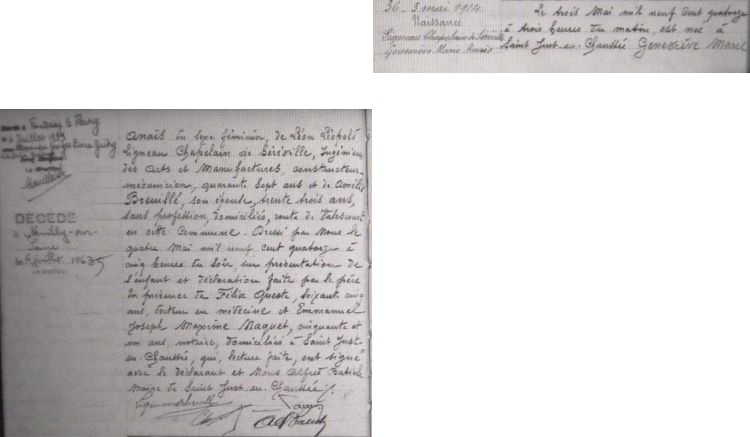 36 - 3 mai 1914
Naissance
Ligneau Chapelain de Séréville
Geneviève Marie Anaïs
Le trois Mai mil neuf cent quatorze
à trois heures du matin, est née à
Saint Just-en-Chaussée Geneviève Marie
Anaïs du sexe féminin, de Léon Léopold
Ligneau Chapelain de Séréville, Ingénieur
des Arts et Manufactures, constructeur
mécanicien, quarante sept ans et de Amélie
Breuillé, son épouse, trente trois ans,
sans profession, domiciliés, route de Valescourt
en cette Commune. Dressé par Nous le
quatre Mai mil neuf cent quatorze à
cinq heures du soir, sur présentation de
l'enfant et déclaration faite par le père
En présence de Félix Queste, soixante cinq
ans, docteur en médecine et Emmanuel
Joseph Maxime Maquet, cinquante et
un ans, notaire, domiciliés à Saint Just
en-Chaussée, qui, lecture faite, ont signé
avec le déclarant et Nous Alfred
Maire de Saint Just-en-Chaussée
à Fontenay
Juillet 1939
Pierre Guitry
DÉCÉDÉ
à Neuilly-sur
Seine